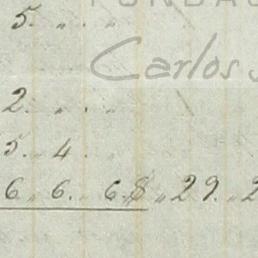 FUNDAC
5 " . "
Carlos
2 " . "
5 " 4 . "
6 " 6 . " 6 . 8 " 29 . " 2